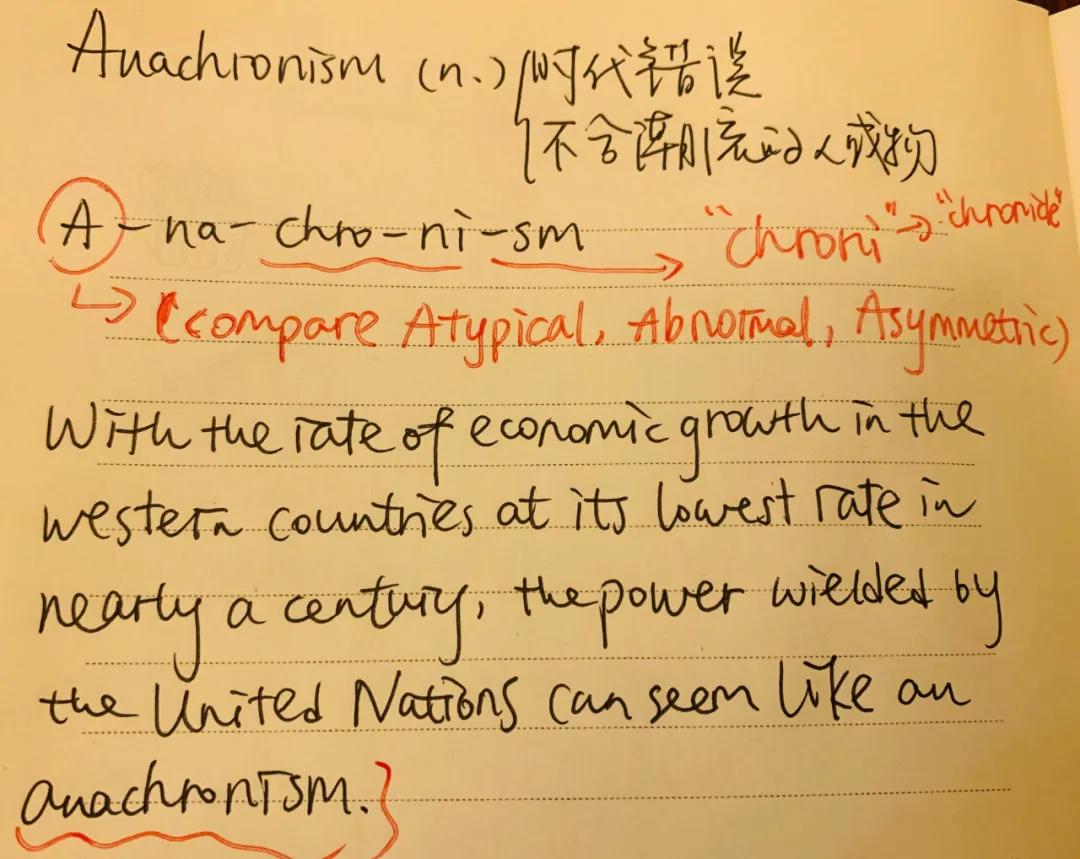 Anachronism (n.) 时代错误
不合潮流的人或物
A-na-chro-ni-sm "chroni"→"chronicle"
↳ (compare Atypical, Abnormal, Asymmetric)
With the rate of economic growth in the
western countries at its lowest rate in
nearly a century, the power wielded by
the United Nations can seem like an
anachronism.}